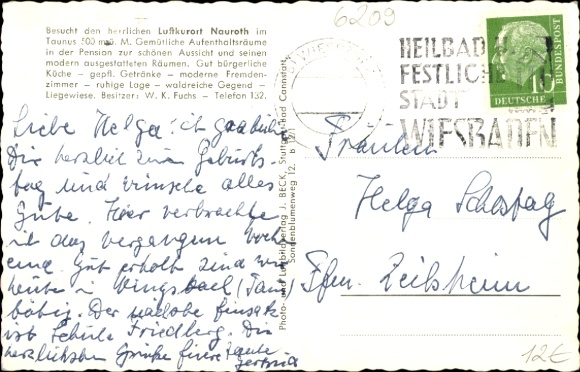 6209
Besucht den herrlichen Luftkurort Nauroth im
Taunus 500 mü. M. Gemütliche Aufenthaltsräume
in der Pension zur schönen Aussicht und seinen
modern ausgestatteten Räumen. Gut bürgerliche
Küche – gepfl. Getränke – moderne Fremden-
zimmer – ruhige Lage – waldreiche Gegend –
Liegewiese. Besitzer: W. K. Fuchs – Telefon 132.
HEILBAD
FESTLICHE
STADT
WIESBADEN
10
DEUTSCHE
BUNDESPOST
Liebe Helga! ich gratuliere
Dir herzlich zum Geburts-
tag und wünsche alles
Gute. Hier verbrachte
ich das vergangene Wochen
ende. Gut erholt sind wir
heute in Wingsbach (Taun
Der nächste Einsatz
ist Schule Friedberg. Die
herzlichsten Grüße Tante
Gertrud
Photo- und Luftbildverlag J. BECK, Stuttgart-Bad Cannstatt,
Sonnenblumenweg 12.
Fräulein
Helga
Ffm. Zeilsheim
12€